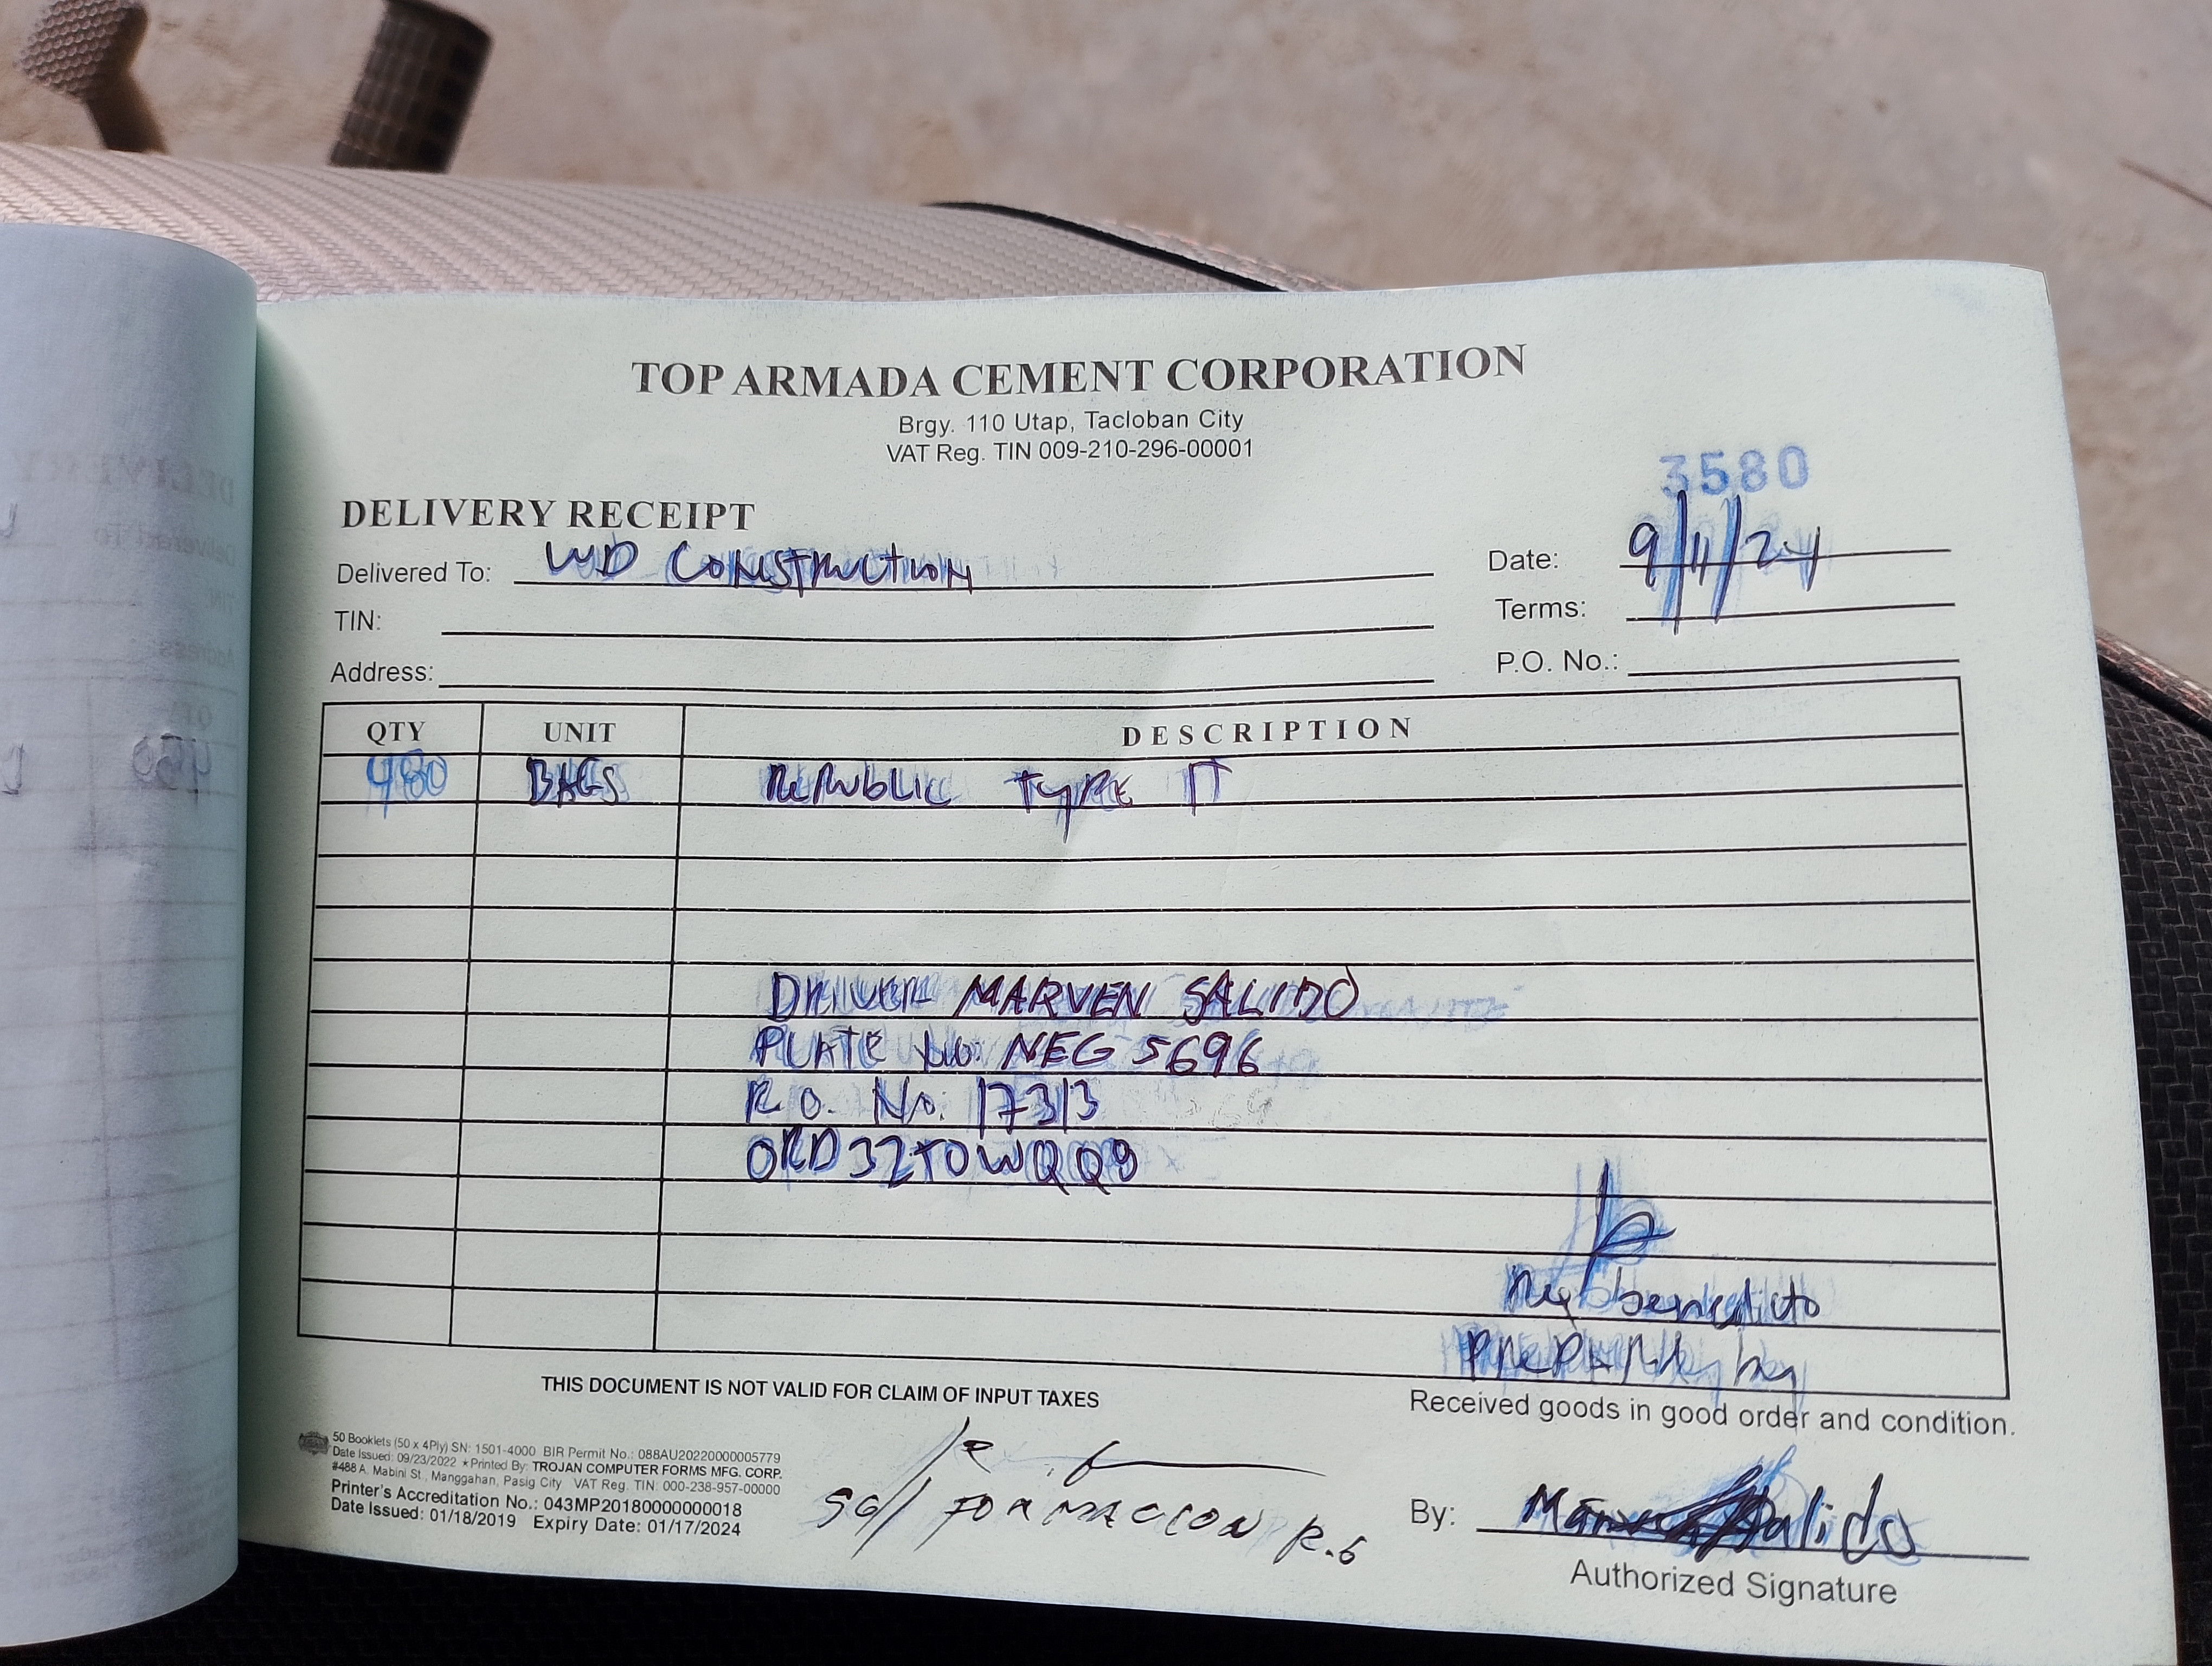 TOP ARMADA CEMENT CORPORATION
Brgy. 110 Utap, Tacloban City
VAT Reg. TIN 009-210-296-00001
3580
DELIVERY RECEIPT
Delivered To: WD CONSTRUCTION
Date: 9/11/24
TIN:
Terms:
Address:
P.O. No.:
QTY UNIT DESCRIPTION
480 BAGS REPUBLIC TYPE
DRIVER MARVEN SALIDO
PLATE No: NEG 5696
R.O. No. 17313
ORD32TOWQQ9
benedicto
by
THIS DOCUMENT IS NOT VALID FOR CLAIM OF INPUT TAXES
Received goods in good order and condition.
50 Booklets (50 x 4Ply) SN: 1501-4000 BIR Permit No.: 088AU20220000005779
Date Issued: 09/23/2022 ★Printed By: TROJAN COMPUTER FORMS MFG. CORP.
#488 A. Mabini St., Manggahan, Pasig City VAT Reg. TIN: 000-238-957-00000
Printer's Accreditation No.: 043MP20180000000018
Date Issued: 01/18/2019 Expiry Date: 01/17/2024
SG/ FORMACION R.S
By: Salido
Authorized Signature